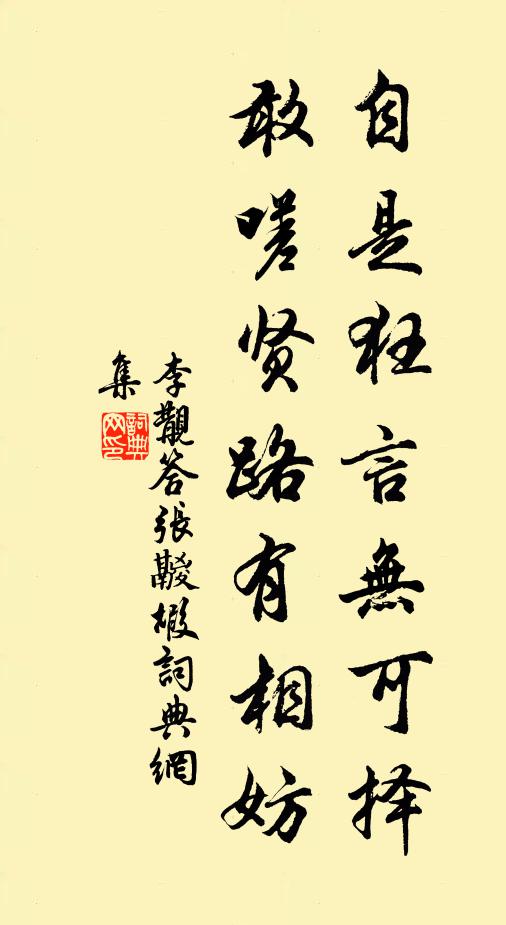 自是狂言無可择
敢嗟贤路有相妨
李觏答張
詞典網
集
詞典
网印